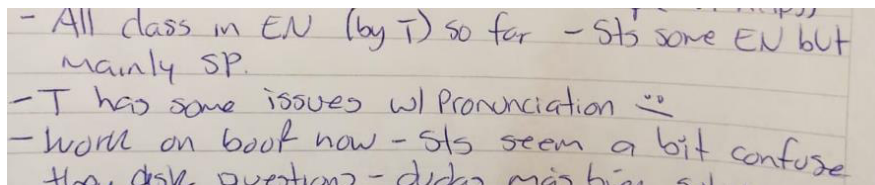 - All class in EN (by T) so far - Sts some EN but
mainly SP.
- T has some issues w/ Pronunciation
- Work on book now - Sts seem a bit confuse
ask questions - dudas más bien